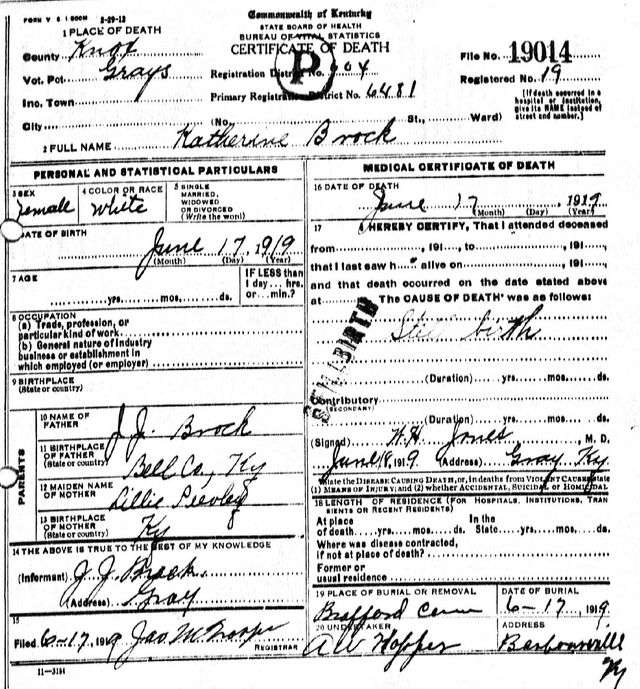 FORM V S 1 500M 2-29-12
Commonwealth of Kentucky
STATE BOARD OF HEALTH
BUREAU OF VITAL STATISTICS
CERTIFICATE OF DEATH
1 PLACE OF DEATH
County Knox
Vot. Pct Grays
Inc. Town
City
Registration District No. 604
Primary Registration District No. 6481
P
File No. 19014
Registered No. 19
[If death occurred in a hospital or institution, give its NAME instead of street and number.]
(No. St., Ward)
2 FULL NAME Katherine Brock
PERSONAL AND STATISTICAL PARTICULARS
3 SEX Female
4 COLOR OR RACE White
5 SINGLE MARRIED, WIDOWED OR DIVORCED (Write the word)
DATE OF BIRTH June 17, 1919
(Month) (Day) (Year)
7 AGE
yrs. mos. ds.
IF LESS than 1 day... hrs. or... min.?
8 OCCUPATION
(a) Trade, profession, or particular kind of work
(b) General nature of industry business or establishment in which employed (or employer)
9 BIRTHPLACE (State or country)
PARENTS
10 NAME OF FATHER J. J. Brock
11 BIRTHPLACE OF FATHER (State or country) Bell Co, Ky
12 MAIDEN NAME OF MOTHER Lillie
13 BIRTHPLACE OF MOTHER (State or country) Ky
14 THE ABOVE IS TRUE TO THE BEST OF MY KNOWLEDGE
(Informant) J. J. Brock
(Address) Gray
15
Filed 6-17, 1919 Jas M
REGISTRAR
11-3184
MEDICAL CERTIFICATE OF DEATH
16 DATE OF DEATH
June 17, 1919
(Month) (Day) (Year)
17 I HEREBY CERTIFY, That I attended deceased
from , 191 , to , 191 ,
that I last saw h alive on , 191 ,
and that death occurred on the date stated above
at The CAUSE OF DEATH was as follows:
STILLBIRTH
Still birth
(Duration) yrs. mos. ds.
Contributory (SECONDARY)
(Duration) yrs. mos. ds.
(Signed) W. H. Jones M. D.
June 18, 1919 (Address) Gray Ky
State the DISEASE CAUSING DEATH, or, in deaths from VIOLENT CAUSES state (1) MEANS OF INJURY; and (2) whether ACCIDENTAL, SUICIDAL or HOMICIDAL
18 LENGTH OF RESIDENCE (FOR HOSPITALS, INSTITUTIONS, TRANSIENTS OR RECENT RESIDENTS)
At place of death yrs. mos. ds. In the State yrs. mos. ds.
Where was disease contracted, if not at place of death?
Former or usual residence
19 PLACE OF BURIAL OR REMOVAL
Bafford Cem
DATE OF BURIAL
6-17, 1919
20 UNDERTAKER
A W Hopper
ADDRESS
Barbourville Ky